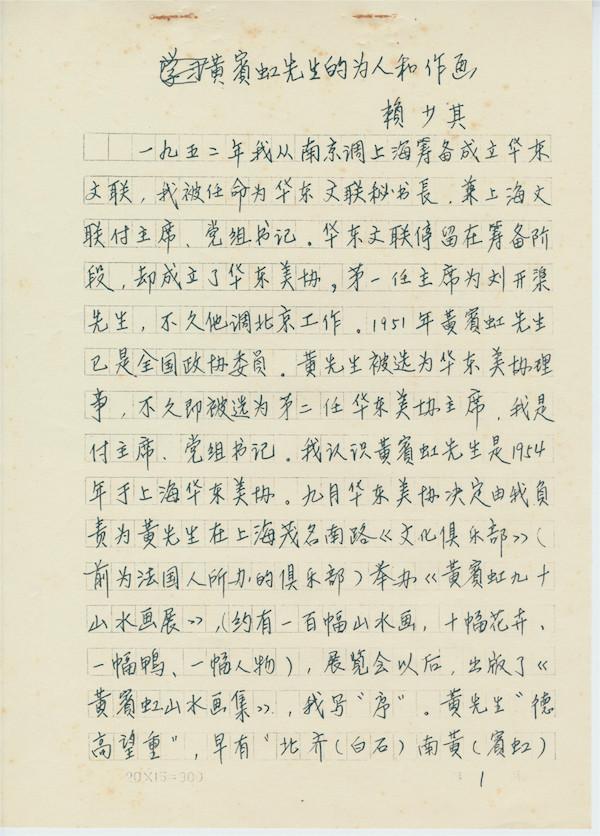 学习黄賓虹先生的为人和作画
賴少其
一九五二年我从南京调上海筹备成立华东
文联,我被任命为华东文联秘书長、兼上海文
联付主席、党组书记。华东文联停留在筹备阶
段,却成立了华东美协。第一任主席为刘开渠
先生,不久他调北京工作。1951年黄賓虹先生
已是全国政协委员。黄先生被选为华东美协理
事,不久即被选为第二任华东美协主席,我是
付主席、党组书记。我认识黄賓虹先生是1954
年于上海华东美协。九月华东美协决定由我負
责为黄先生在上海茂名南路《文化俱乐部》(
前为法国人所办的俱乐部)举办《黄賓虹九十
山水画展》,(约有一百幅山水画,十幅花卉、
一幅鸭、一幅人物),展览会以后,出版了《
黄賓虹山水画集》,我写“序”。黄先生“德
高望重”,早有“北齐(白石)南黄(賓虹)
20×15=300
1